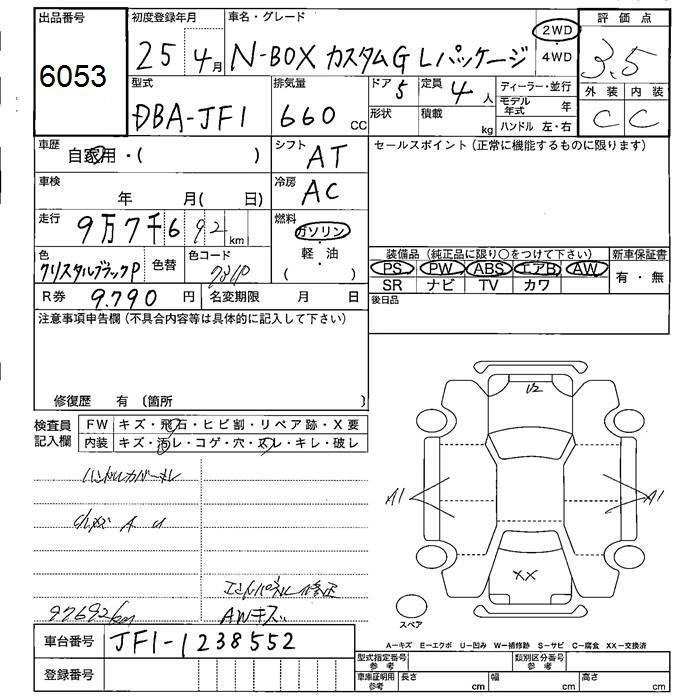 出品番号
6053
初度登録年月
25 4月
車名・グレード
N-BOX カスタムG Lパッケージ
2WD
4WD
評価点
3.5
外装 内装
C C
型式
DBA-JF1
排気量
660 cc
ドア 5
定員 4人
形状
積載 kg
ディーラー・並行
モデル年式 年
ハンドル 左・右
車歴
自家用・( )
シフト
AT
セールスポイント(正常に機能するものに限ります)
車検
年 月( 日)
冷房
AC
走行
9万7千692 km
燃料
ガソリン
・
軽・油
( )
色
クリスタルブラックP
色替
色コード
装備品(純正品に限り○をつけて下さい)
PS PW ABS エアB AW
SR ナビ TV カワ
新車保証書
有・無
R券 9.790 円
名変期限 月 日
後日品
注意事項申告欄(不具合内容等は具体的に記入して下さい)
修復歴 有 〔箇所 〕
検査員
記入欄
FW キズ・飛石・ヒビ割・リペア跡・X要
内装 キズ・汚レ・コゲ・穴・スレ・キレ・破レ
ハンドルカバーキレ
A U
97692km
AWキズ
U2
A1
A1
XX
スペア
A−キズ E−エクボ U−凹み W−補修跡 S−サビ C−腐食 XX−交換済
車台番号 JF1-1238552
登録番号
型式指定番号
参考
類別区分番号
参考
車庫証明用
参考
長さ cm
幅 cm
高さ cm